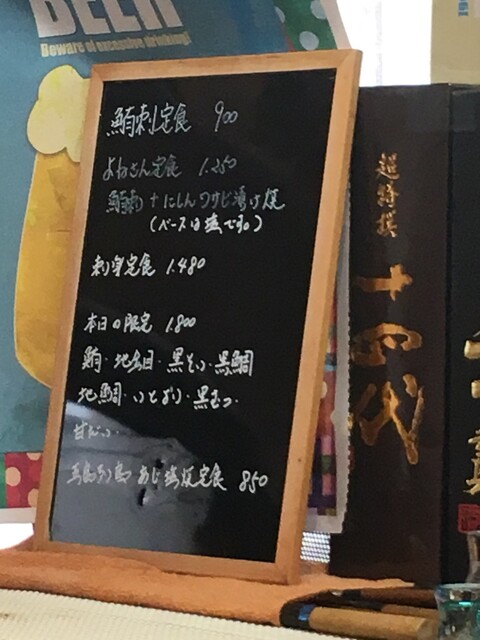 BEER
Beware of excessive drinking!
鮪刺定食 900
よねさん定食 1.250
鮪刺 + にしんワサビ漬け焼
(ベースは塩です。)
刺身定食 1.480
本日の限定 1.800
鮪・地金目・黒そい・黒鯛
地鯛・いとより・黒むつ・
甘だい・
五島列島 あじ塩焼定食 850
超特撰
十四代